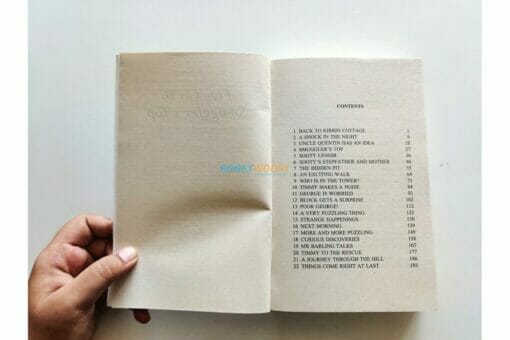 Five Go To
Smuggler's Top
BOOKYWOOKY
CONTENTS
1 BACK TO KIRRIN COTTAGE 1
2 A SHOCK IN THE NIGHT 9
3 UNCLE QUENTIN HAS AN IDEA 18
4 SMUGGLER'S TOP 27
5 SOOTY LENOIR 37
6 SOOTY'S STEPFATHER AND MOTHER 46
7 THE HIDDEN PIT 55
8 AN EXCITING WALK 64
9 WHO IS IN THE TOWER? 73
10 TIMMY MAKES A NOISE 84
11 GEORGE IS WORRIED 93
12 BLOCK GETS A SURPRISE 102
13 POOR GEORGE! 112
14 A VERY PUZZLING THING 122
15 STRANGE HAPPENINGS 130
16 NEXT MORNING 139
17 MORE AND MORE PUZZLING 149
18 CURIOUS DISCOVERIES 158
19 MR BARLING TALKS 167
20 TIMMY TO THE RESCUE 177
21 A JOURNEY THROUGH THE HILL 186
22 THINGS COME RIGHT AT LAST 193